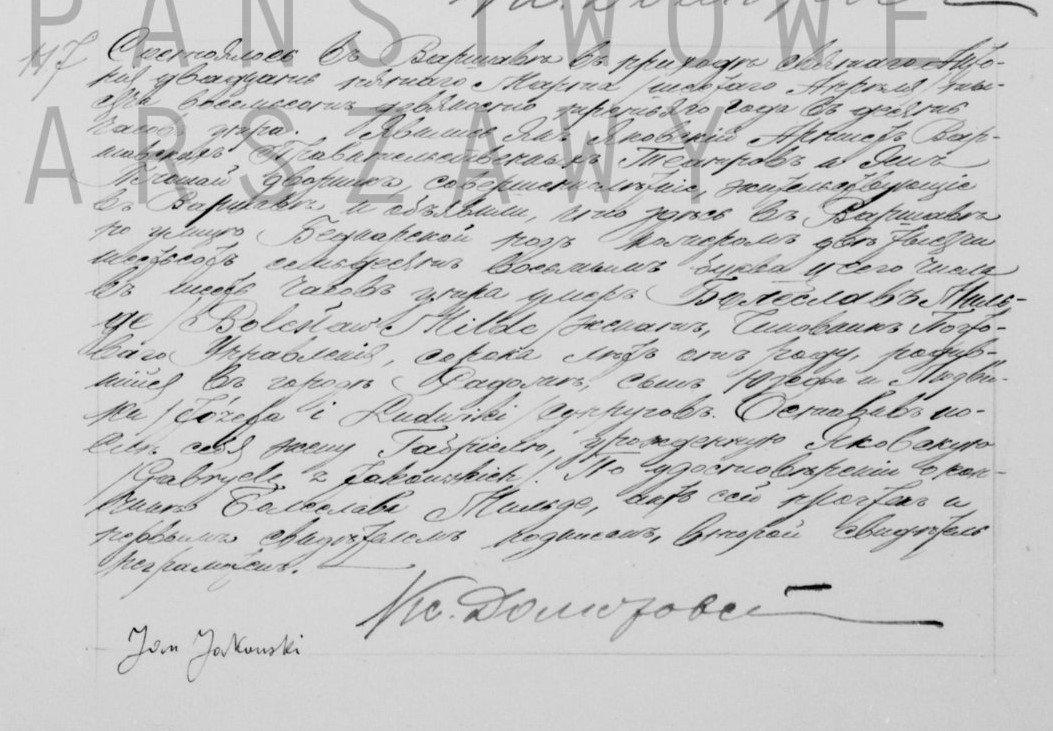 PAŃSTWOWE
ARSZAWY
117 Состоялось въ Варшавѣ въ приходѣ святаго Анто-
нія двадцать пятаго Марта /шестаго Апрѣля/ ты-
сяча восемьсотъ девяносто третьяго года въ десять
часовъ утра. Явились Янъ Яковскій Артистъ Вар-
шавскихъ Правительственныхъ Театровъ и Янъ
дворникъ, совершеннолѣтніе, жительствующіе
въ Варшавѣ и объявили, что здѣсь въ Варшавѣ
по улицѣ Беднарской подъ номеромъ двѣ тысячи
шестьсотъ семьдесятъ восьмымъ буква сего числа
въ шесть часовъ утра умеръ Болеславъ Миль-
де /Bolesław Milde/ Чиновникъ Почто-
ваго Управленія, сорока лѣтъ отъ роду, родив-
шійся въ городѣ Радомѣ, сынъ Юзефа и Людви-
ки /Józefa i Ludwiki/ супруговъ. Оставивъ по-
слѣ себя жену Габріелю, урожденную Яковскую
/Gabryelę z Jakowskich/. По удостовѣреніи о кон-
чинѣ Болеслава Мильде, актъ сей прочтенъ и
первымъ свидѣтелемъ подписанъ, второй свидѣтель
неграмотенъ.
Кс.
Jan Jakowski